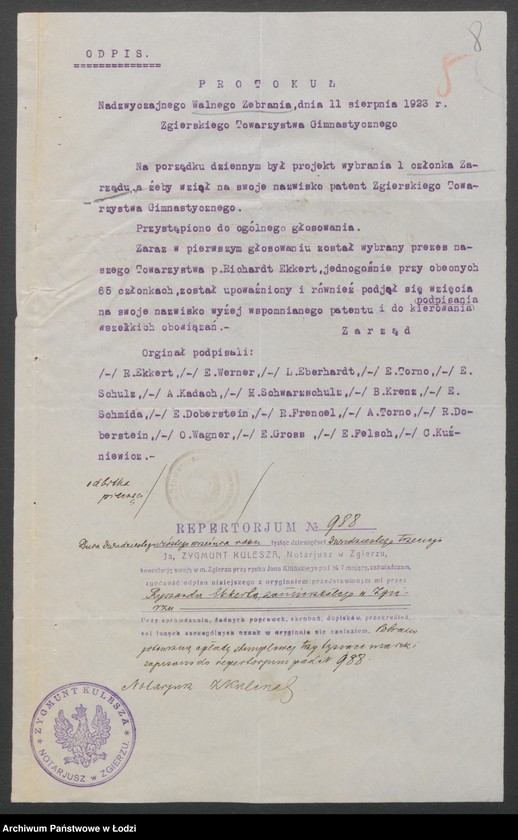 8
5
O D P I S.
P R O T O K U Ł
Nadzwyczajnego Walnego Zebrania,dnia 11 sierpnia 1923 r.
Zgierskiego Towarzystwa Gimnastycznego
Na porządku dziennym był projekt wybrania 1 członka Za-
rządu,a żeby wziął na swoje nazwisko patent Zgierskiego Towa-
rzystwa Gimnastycznego.
Przystąpiono do ogólnego głosowania.
Zaraz w pierwszym głosowaniu został wybrany prezes na-
szego Towarzystwa p.Richardt Ekkert,jednogośnie przy obecnych
65 członkach,został upoważniony i również podjął się wzięcia
podpisania
na swoje nazwisko wyżej wspomnianego patentu i do kierowania
wszelkich obowiązań.-
Z a r z ą d
Orginał podpisali:
/-/ R.Ekkert,/-/ E.Werner,/-/ L.Eberhardt,/-/ E.Torno,/-/ E.
Schulz,/-/ A.Kadach,/-/ H.Schwarzschulz,/-/ B.Krenz,/-/ E.
Schmida,/-/ E.Doberstein,/-/ R.Frencel,/-/ A.Torno,/-/ R.Do-
berstein,/-/ O.Wagner,/-/ E.Gross ,/-/ E.Felsch,/-/ C.Kuź-
niewicz.-
odbitka
pieczęci
REPERTORJUM № 988
Dnia dwudziestego września roku tysiąc dziewięćset dwudziestego trzeciego
Ja, ZYGMUNT KULESZA, Notarjusz w Zgierzu,
kancelarję swoją w m. Zgierzu przy rynku Jana Kilińskiego pod № 7 mający, zaświadczam,
zgodność odpisu niniejszego z oryginałem przedstawionym mi przez
Ryszarda Ekkerta, zamieszkałego w Zgie-
rzu
Przy sprawdzaniu, żadnych poprawek, skrobań, dopisków, przekreśleń,
ani innych szczególnych oznak w oryginale nie znalazłem. Pobrano
opłatę stemplową trzy tysiące marek i
zapisano do repertorjum pod № 988.
Notarjusz ZKulesza
ZYGMUNT KULESZA
NOTARJUSZ w ZGIERZU.
Archiwum Państwowe w Łodzi